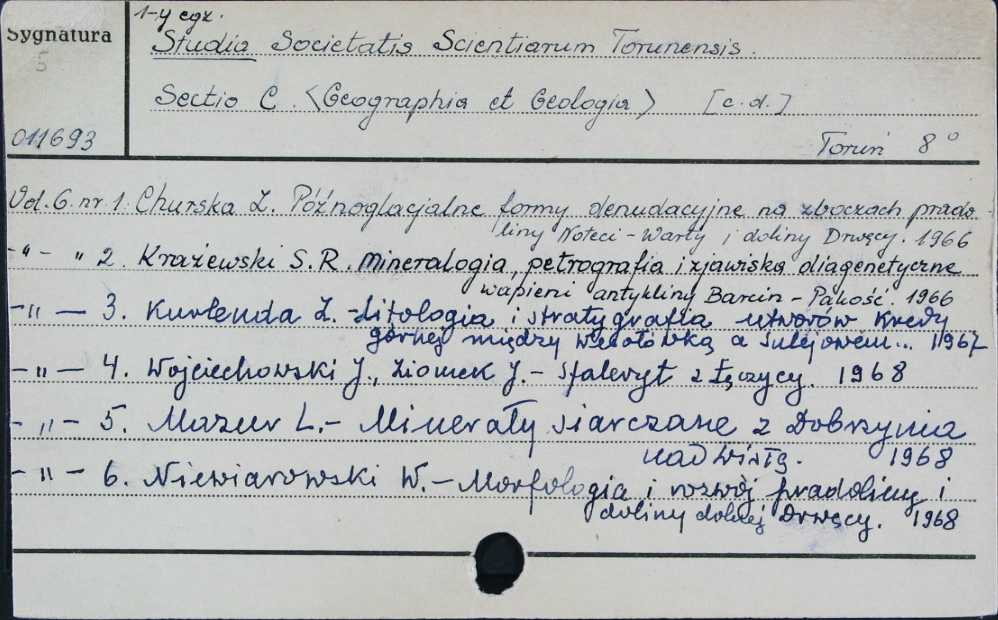 1-y egz.
Sygnatura
5
Studia Societatis Scientiarum Torunensis.
Sectio C. <Geographia et Geologia> [c.d.]
011693
Toruń 8°
Vol. 6. nr 1. Churska Z. Późnoglacjalne formy denudacyjne na zboczach prado-
liny Noteci-Warty i doliny Drwęcy. 1966
-"- " 2. Krażewski S.R. mineralogia, petrografia i zjawiska diagenetyczne
wapieni antykliny Barcin-Pakość. 1966
-"- 3. Kurlenda Z.-Litologia i stratygrafia utworów kredy
górnej między Wesołówką a Sulejowem... 1967
-"- 4. Wojciechowski J., Ziomek J.- Sfaleryt z Łęczycy. 1968
-"- 5. Mazur L.- Minerały siarczane z Dobrzynia
nad Wisłą. 1968
-"- 6. Niewiarowski W.-Morfologia i rozwój pradoliny i
doliny dolnej Drwęcy. 1968